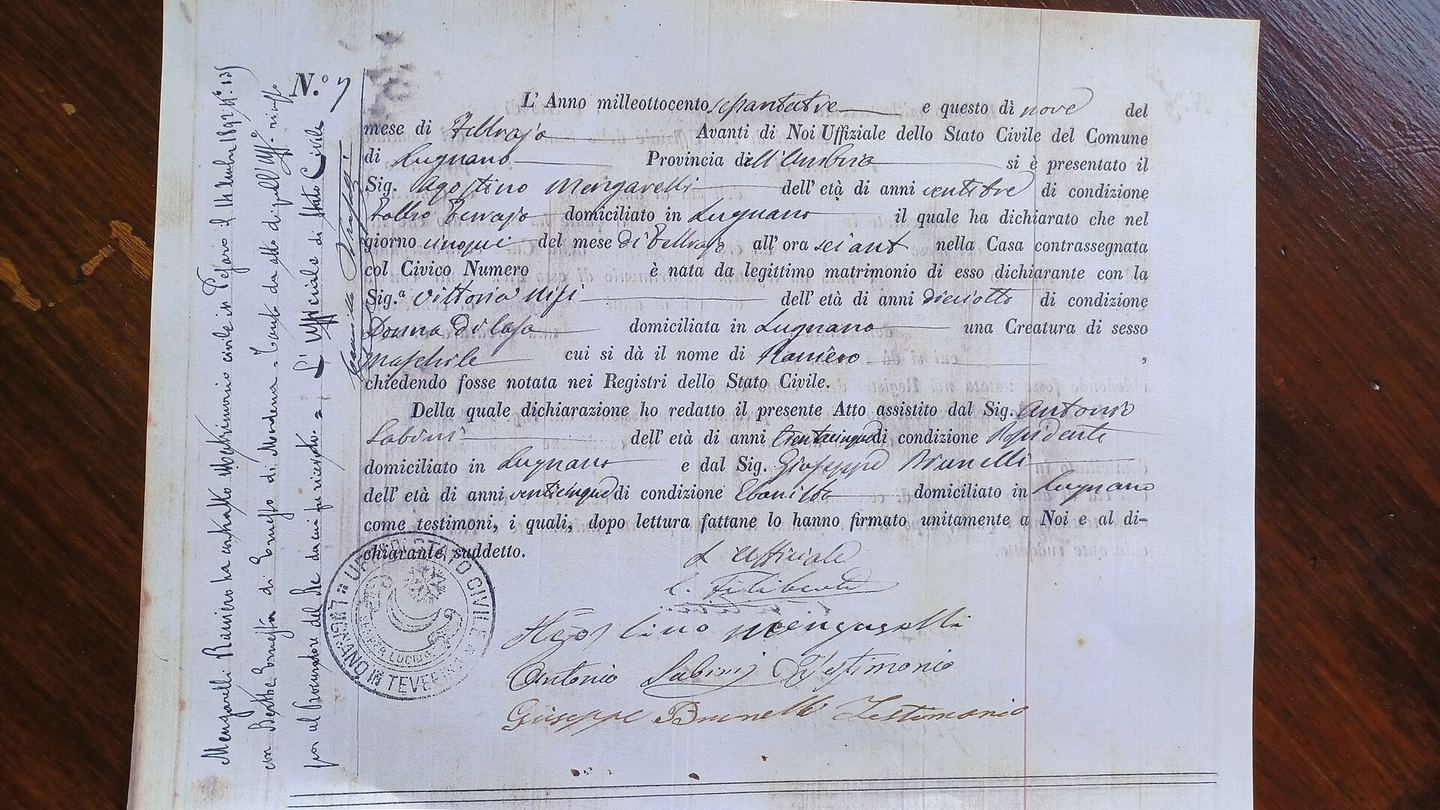 N.º 7
L' Anno milleottocento e questo dì nove del
mese di Febbrajo Avanti di Noi Uffiziale dello Stato Civile del Comune
di Lugnano Provincia dell'Umbria si è presentato il
Sig. Agostino Mengarelli dell'età di anni ventitre di condizione
Fabbro Ferrajo domiciliato in Lugnano il quale ha dichiarato che nel
giorno cinque del mese di Febbrajo all'ora sei ant nella Casa contrassegnata
col Civico Numero è nata da legittimo matrimonio di esso dichiarante con la
Sig.ª Vittoria dell'età di anni diciotto di condizione
Donna di Casa domiciliata in Lugnano una Creatura di sesso
Maschile cui si dà il nome di Raniero ,
chiedendo fosse notata nei Registri dello Stato Civile.
Della quale dichiarazione ho redatto il presente Atto assistito dal Sig. Antonio
Sabini dell'età di anni trentacinque di condizione Possidente
domiciliato in Lugnano e dal Sig. Giuseppe Brunelli
dell'età di anni venticinque di condizione Ebanista domiciliato in Lugnano
come testimoni, i quali, dopo lettura fattane lo hanno firmato unitamente a Noi e al di-
chiarante suddetto.
L'Uffiziale
Agostino Mengarelli
Antonio Sabini Testimonio
Giuseppe Brunelli Testimonio
UFF. DI STATO CIVILE
LUGNANO IN TEVERINA
Mengarelli Raniero ha contratto Matrimonio civile in Pesaro il 1892 N.º 135
con di Ernesto di Modena
pel al Procuratore del Re
L'Ufficiale di Stato Civile